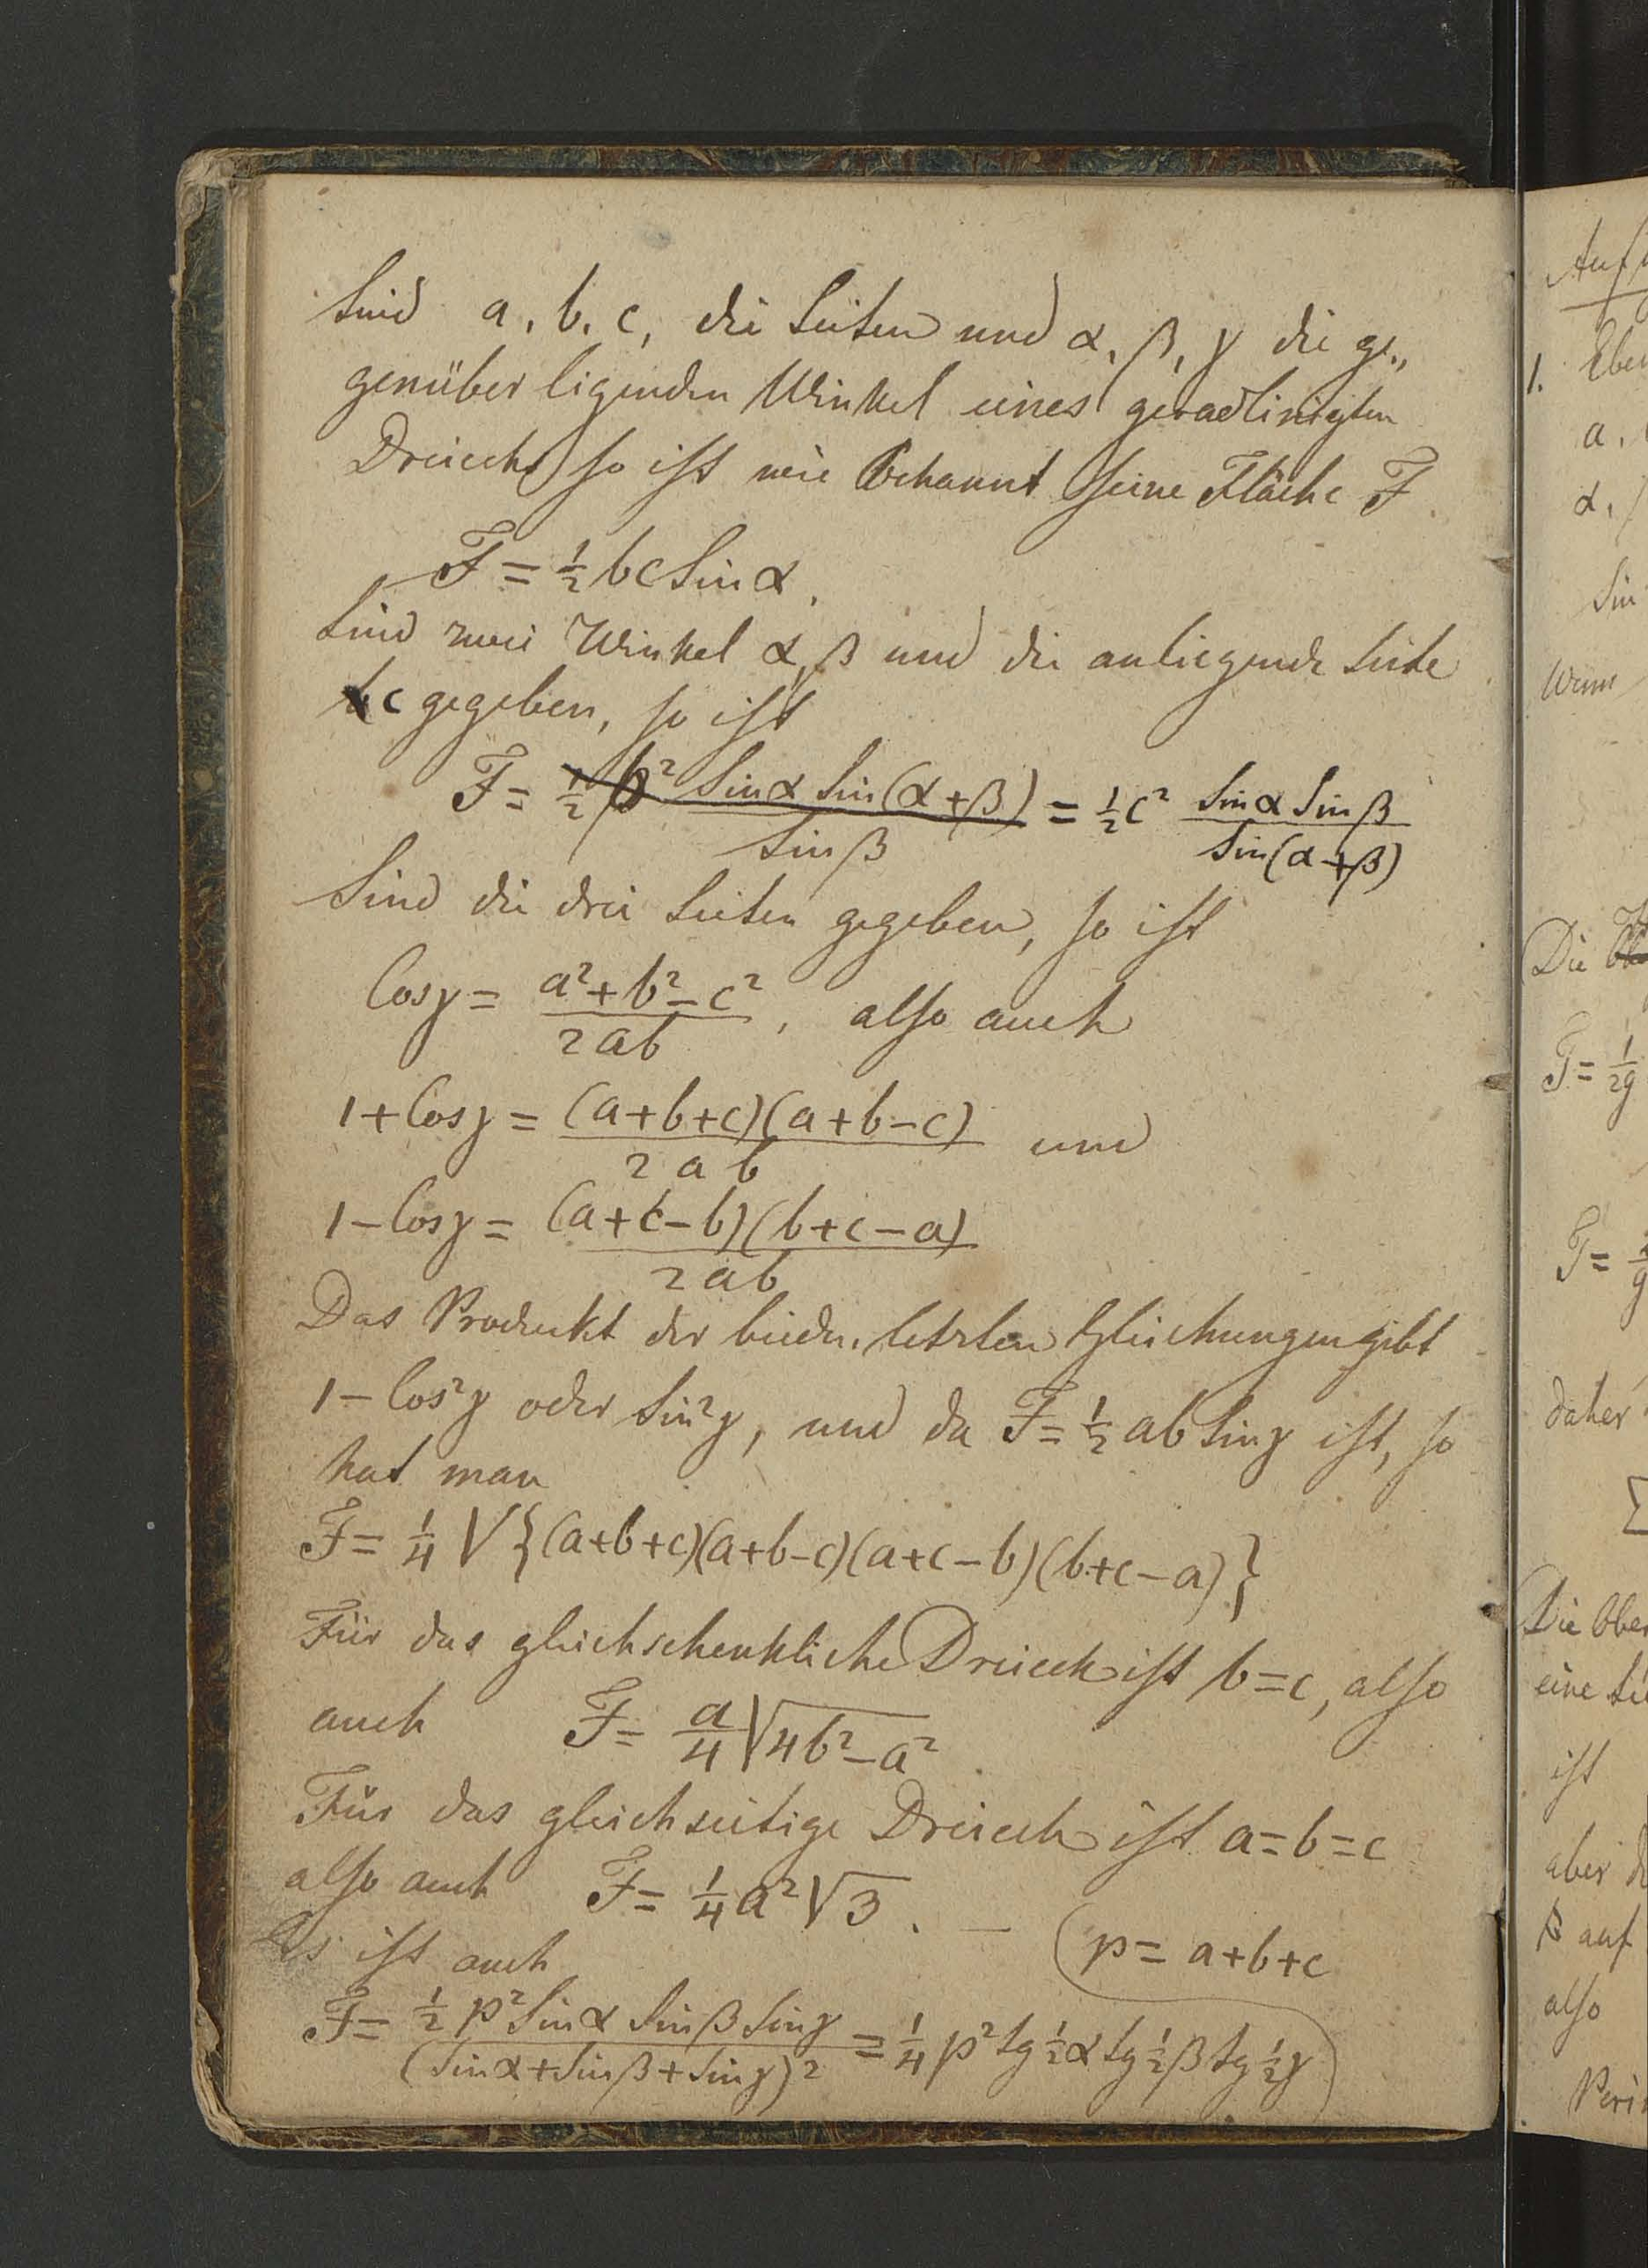 Sind a, b, c, die Seiten und α, β, γ die ge„
genüber ligenden Winkel eines geradlinigten
Dreiecks so ist wie bekannt seine Fläche F
F = ½ bc Sin α.
Sind zwei Winkel α, β und die anliegende Seite
c gegeben, so ist
F = ½ b² Sin α Sin (α + β) / Sin β = ½ c² Sin α Sin β / Sin (α + β)
Sind die drei Seiten gegeben, so ist
Cos γ = a² + b² – c² / 2ab, also auch
1 + Cos γ = (a+b+c)(a+b–c) / 2ab und
1 – Cos γ = (a+c–b)(b+c–a) / 2ab
Das Produckt der beiden letzten Gleichungen gibt
1 – Cos²γ oder Sin²γ, und da F = ½ ab Sin γ ist, so
hat man
F = ¼ √{(a+b+c)(a+b–c)(a+c–b)(b+c–a)}
Für das gleichschenkliche Dreieck ist b = c, also
auch F = a/4 √4b² – a².
Für das gleichseitige Dreieck ist a = b = c
also auch F = ¼ a² √3. –
Es ist auch (p = a+b+c
F = ½ p² Sin α Sin β Sin γ / (Sin α + Sin β + Sin γ)² = ¼ p² tg ½α tg ½β tg ½γ)
1.
a.
α,
Sin
Wenn
Die
F = 1/2g
F =
daher
Die Ober
eine
ist
aber
auf
also